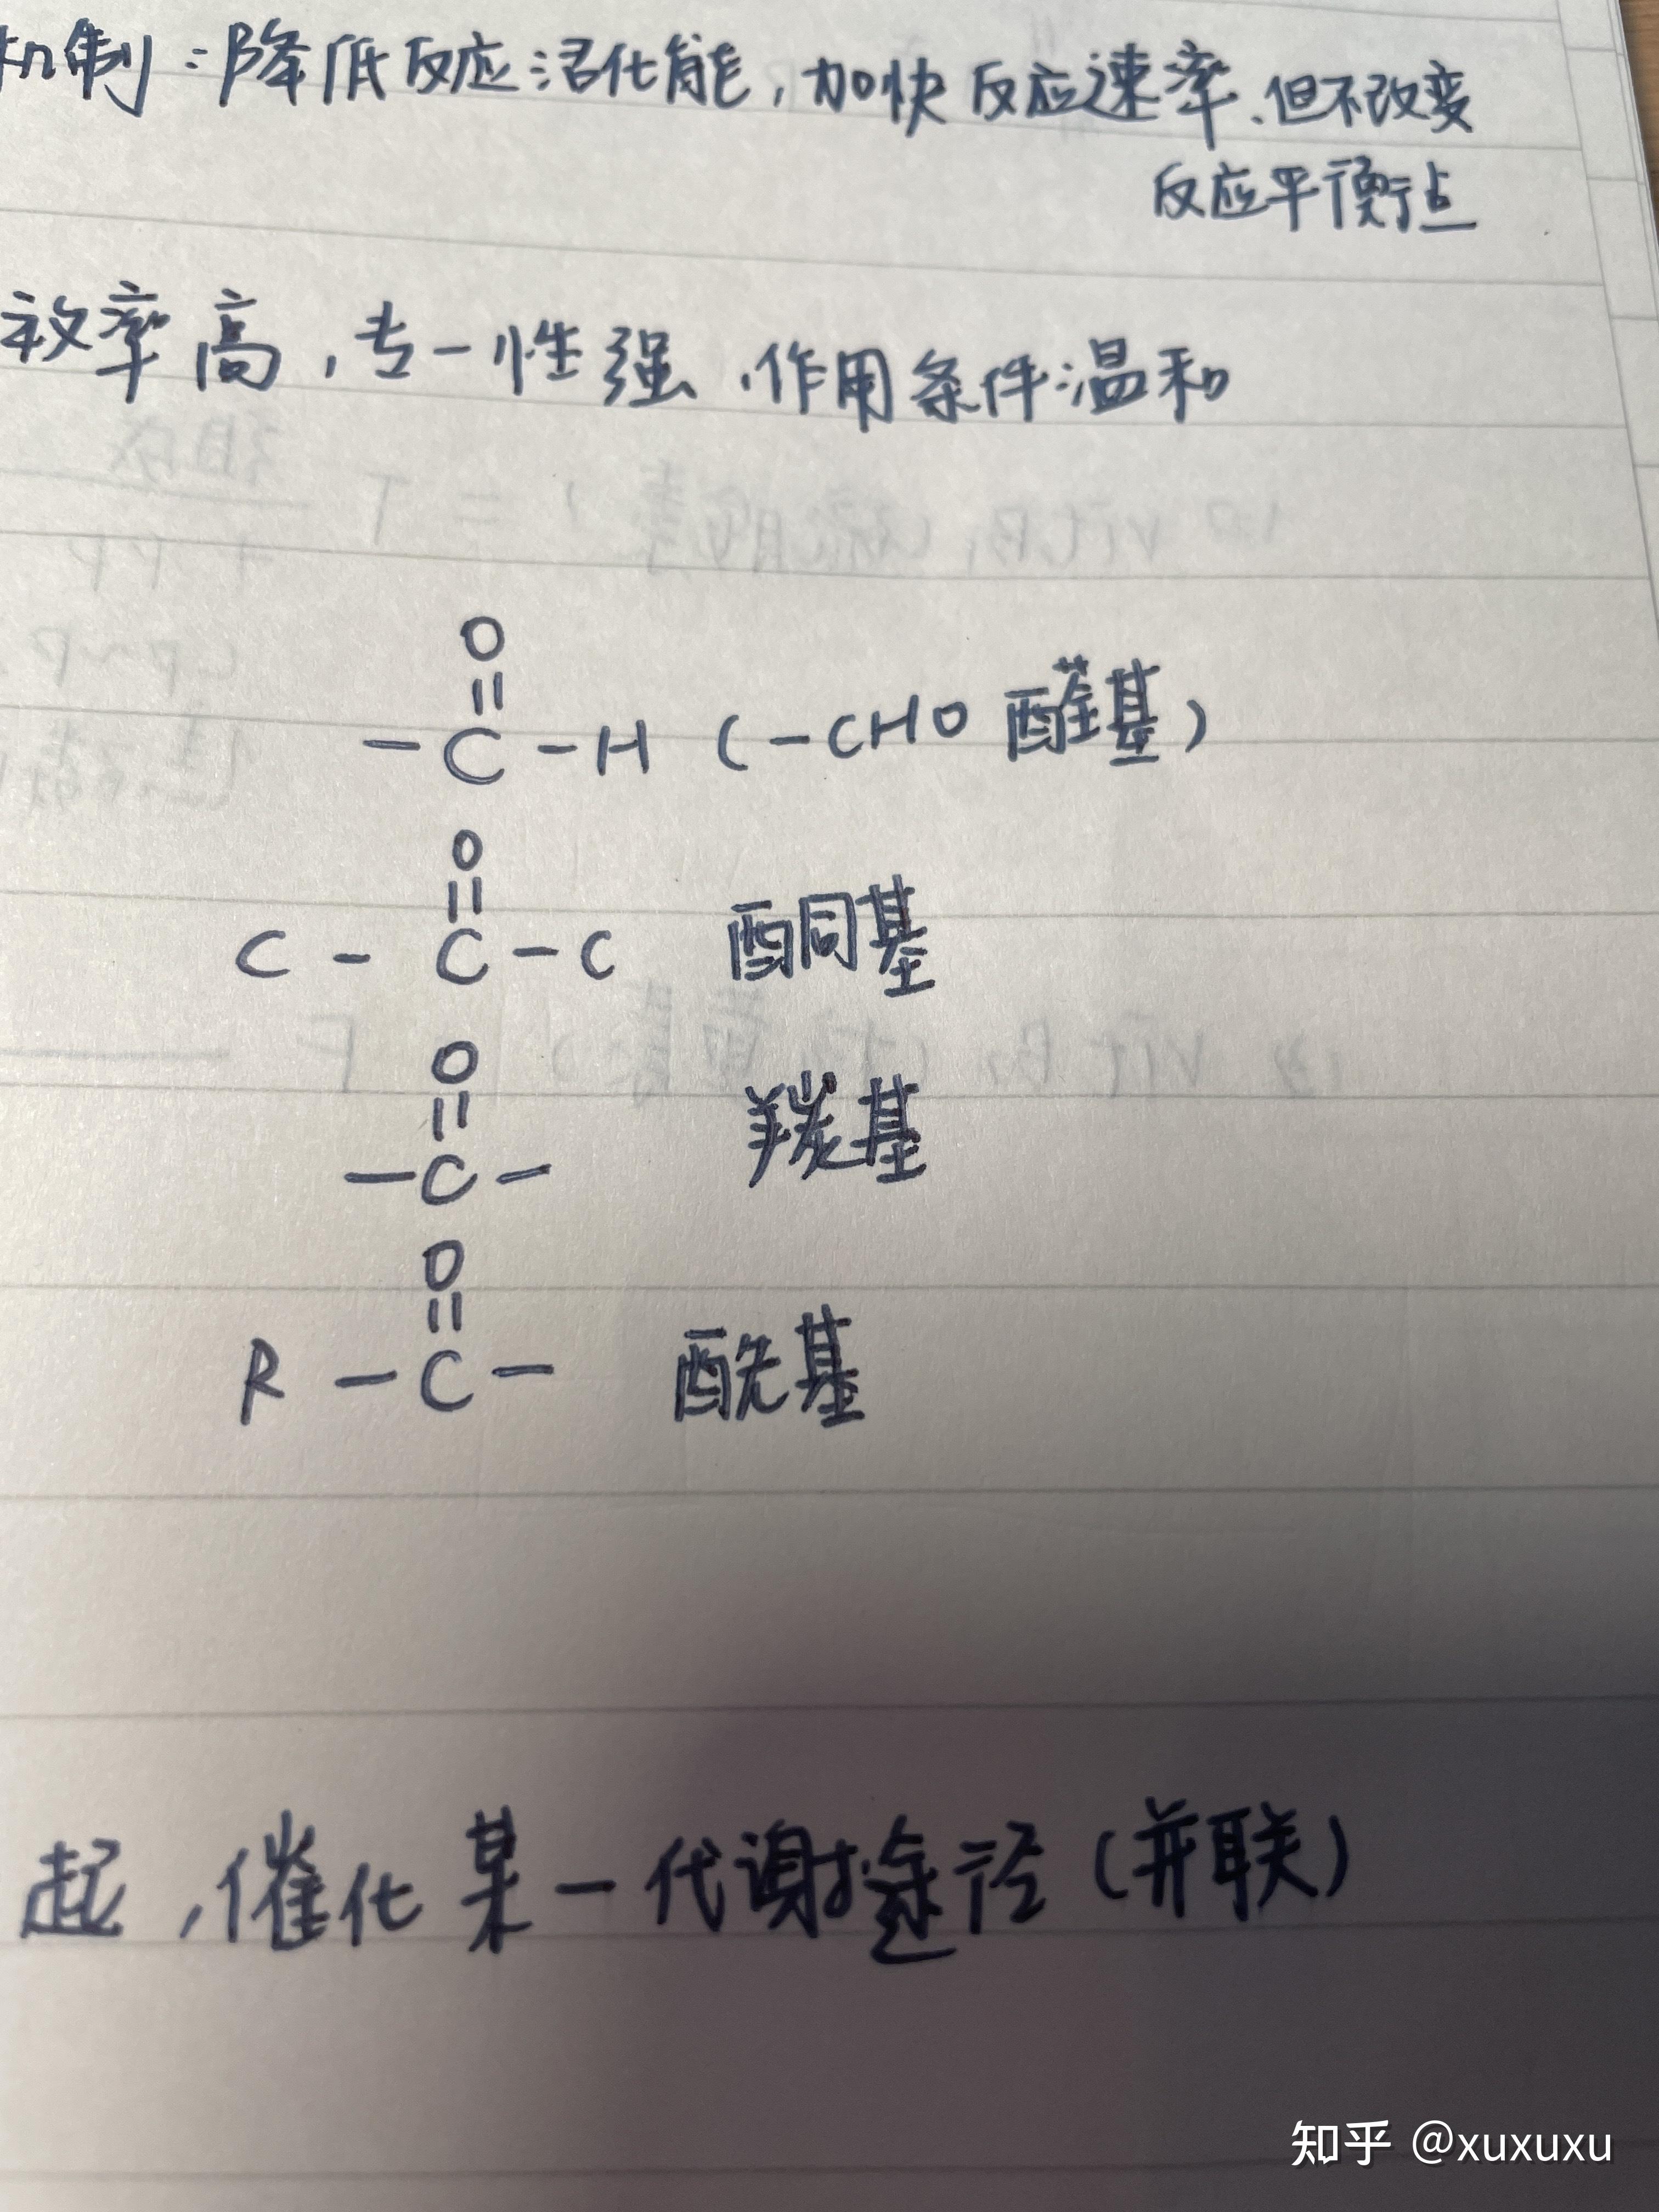 机制：降低反应活化能，加快反应速率、但不改变
反应平衡点
效率高，专一性强、作用条件温和
O
||
-C-H (-CHO 醛基)
O
||
C-C-C 酮基
O
||
-C- 羰基
O
||
R-C- 酰基
起，催化某一代谢途径(并联)
知乎 @xuxuxu